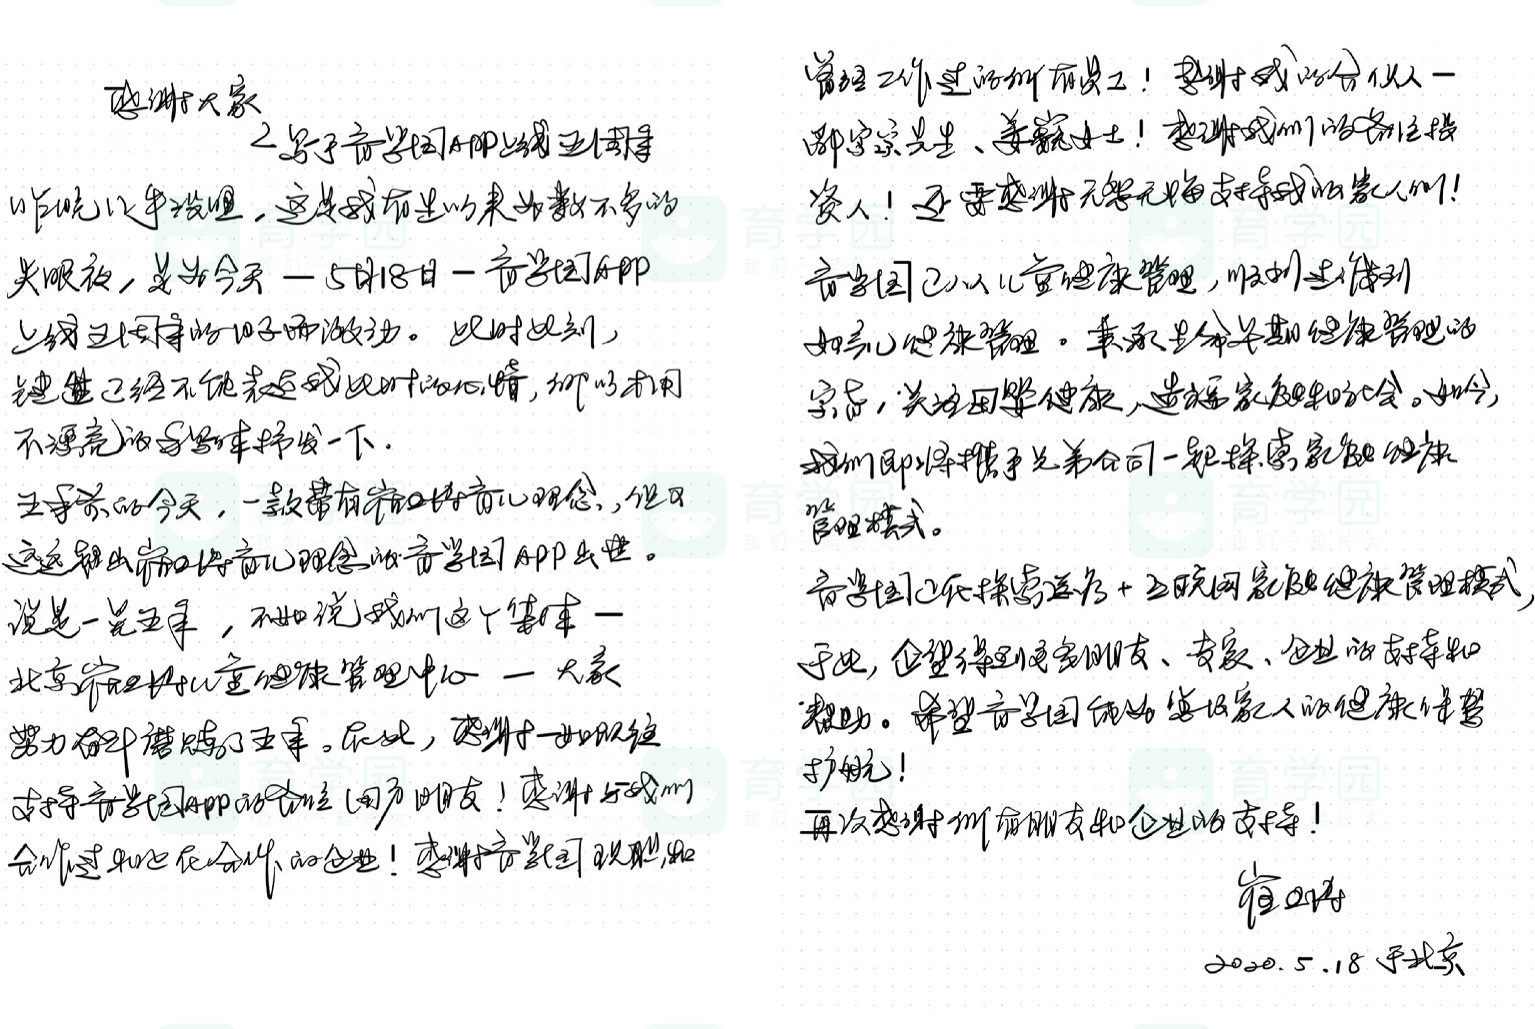 感谢大家
写于育学园APP上线五周年
昨晚几乎没睡，这是我有生以来为数不多的
失眠夜，是为今天 — 5月18日 — 育学园APP
上线五周年的日子而激动。此时此刻，
键盘已经不能表达我此时的心情，所以才用
不漂亮的手写体抒发一下.
五年前的今天，一款带有崔玉涛育儿理念，但又
远远超出崔玉涛育儿理念的育学园APP出世。
说是一晃五年，不如说我们这个集体 —
北京崔玉涛儿童健康管理中心 — 大家
努力奋斗磨练了五年。在此，感谢一如既往
支持育学园APP的各位用户朋友！感谢与我们
合作过和正在合作的企业！感谢育学园现职和
曾经工作过的所有员工！感谢我的合伙人 —
邵宗宗先生、姜巍女士！感谢我们的各位投
资人！还要感谢无怨无悔支持我的家人们！
育学园已从儿童健康管理，顺利进阶到
如家儿健康管理。秉承生命早期健康管理的
宗旨，关注母婴健康，造福家庭和社会。如今，
我们即将携手兄弟公司一起探索家庭健康
管理模式。
育学园正在探索医疗+互联网家庭健康管理模式，
于此，企望得到更多朋友、专家、企业的支持和
帮助。希望育学园能为您及家人的健康保驾
护航！
再次感谢所有朋友和企业的支持！
崔玉涛
2020.5.18 于北京
育学园
我们一起长大
育学园
我们一起长大
育学园
我们一起长大
育学园
我们一起长大
育学园
我们一起长大
育学园
我们一起长大